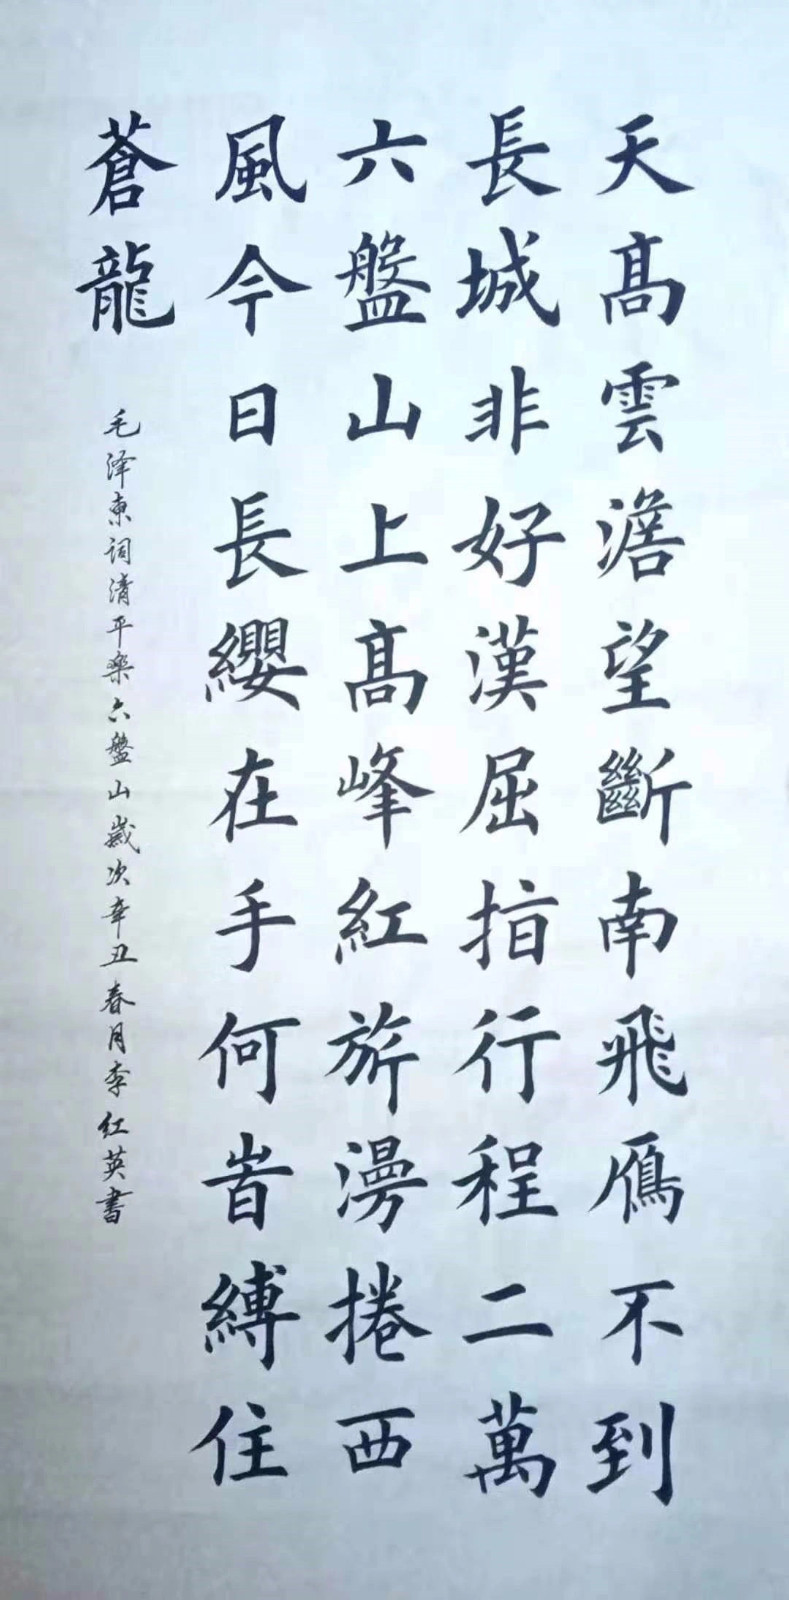 天高雲澹望斷南飛鴈不到
長城非好漢屈指行程二萬
六盤山上高峰紅旂漫捲西
風今日長纓在手何旹縛住
蒼龍
毛泽東词清平樂六盤山歲次辛丑春月李红英書